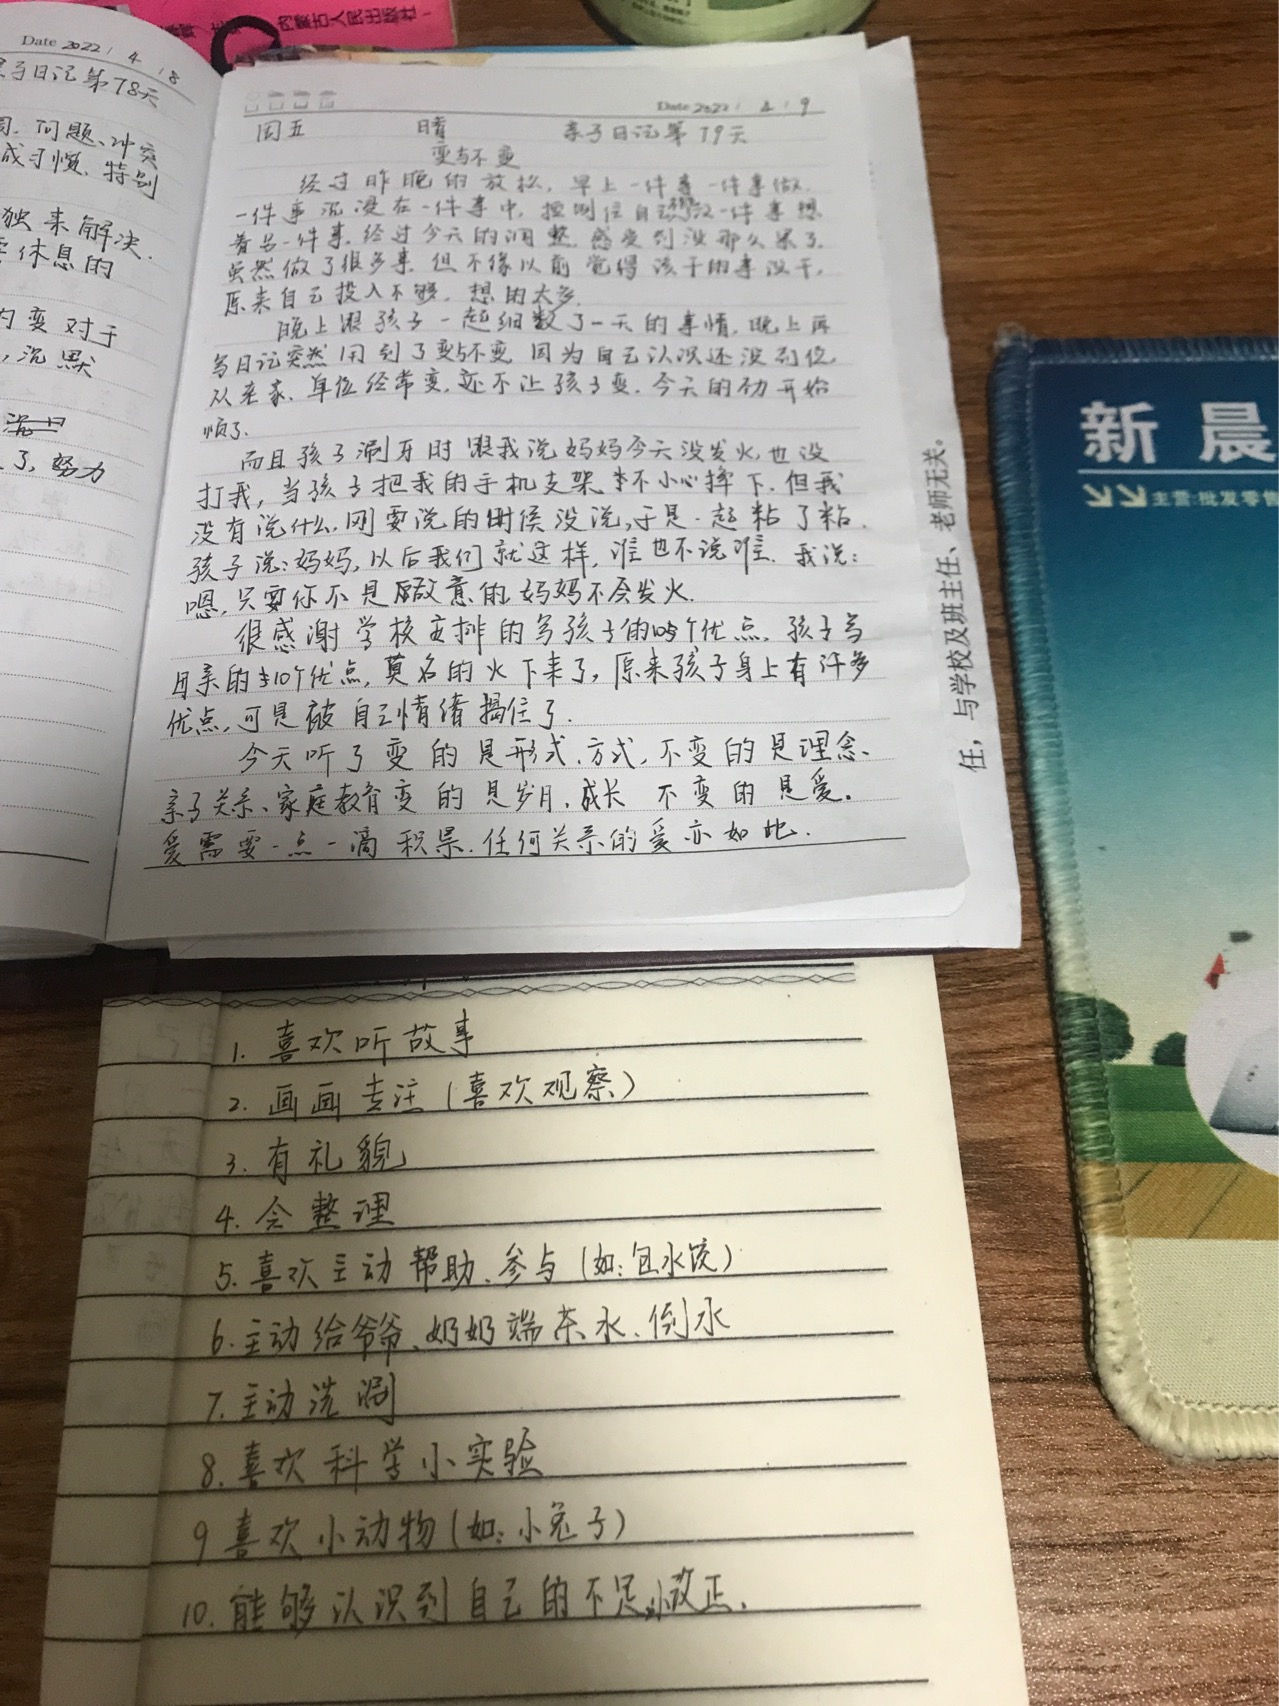 内蒙古人民出版社
Date 2022 / 4 / 8
子日记第78天
问题、冲突
成习惯,特别
独来解决.
休息的
变对于
,沉默
了,努力
Date 2022 / 4 / 9
周五 晴 亲子日记第79天
变与不变
经过昨晚的放松,早上一件事一件事做,
一件事沉浸在一件事中,控制住自己做一件事想
着另一件事.经过今天的调整,感受到没那么累了.
虽然做了很多事,但不像以前觉得该干的事没干,
原来自己投入不够,想的太多.
晚上跟孩子一起细数了一天的事情,晚上再
写日记突然用到了变与不变,因为自己认识还没到位,
从在家、单位经常变,还不让孩子变.今天的初开始
顺了.
而且孩子涮牙时跟我说妈妈今天没发火,也没
打我,当孩子把我的手机支架不小心摔下,但我
没有说什么,刚要说的时候没说,于是一起粘了粘.
孩子说:妈妈,以后我们就这样,谁也不说谁.我说:
嗯,只要你不是故意的妈妈不会发火.
很感谢学校安排的写孩子的10个优点,孩子写
母亲的10个优点,莫名的火下来了,原来孩子身上有许多
优点,可是被自己情绪捂住了.
今天听了变的是形式、方式,不变的是理念、
亲子关系、家庭教育变的是岁月、成长 不变的是爱.
爱需要一点一滴积累.任何关系的爱亦如此.
任,与学校及班主任、老师无关。
新晨
主营:批发零售
1. 喜欢听故事
2. 画画专注(喜欢观察)
3. 有礼貌
4. 会整理
5. 喜欢主动帮助、参与(如:包水饺)
6. 主动给爷爷、奶奶端茶水、倒水
7. 主动洗涮
8. 喜欢科学小实验
9 喜欢小动物(如:小兔子)
10. 能够认识到自己的不足,改正.